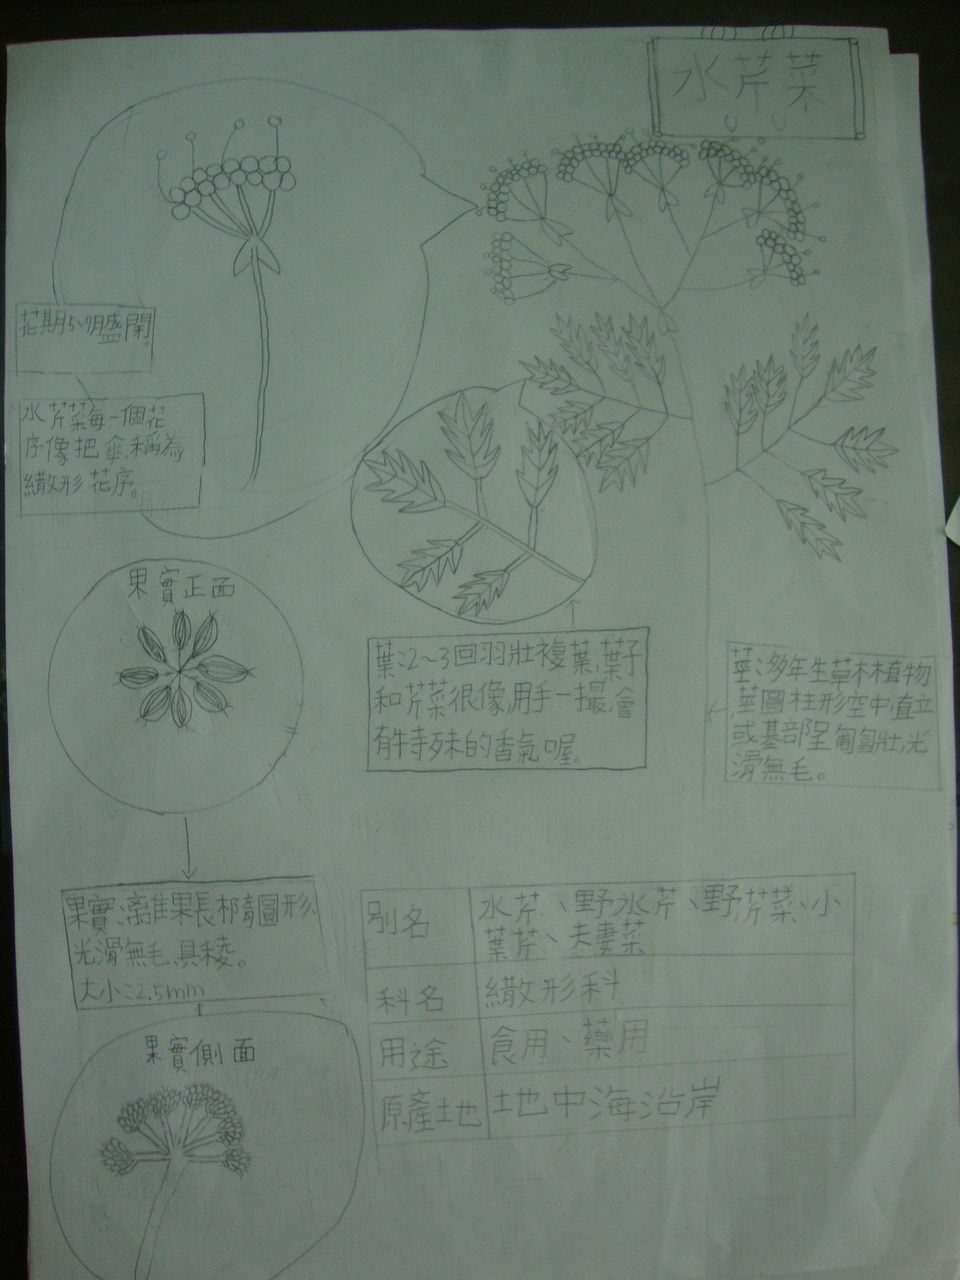 水芹菜
花期5~7月盛開。
水芹菜每一個花
序像把傘,稱為
繖形花序。
果實正面
葉:2~3回羽壯複葉,葉子
和芹菜很像,用手一撮,會
有特殊的香氣喔。
莖:多年生草本植物
,莖圓柱形空中,直立
或基部呈匍匐壯,光
滑無毛。
果實:離果長橢圓形、
光滑無毛、具稜。
大小:2.5mm
果實側面
別名 水芹、野水芹、野芹菜、小
葉芹、夫妻菜
科名 繖形科
用途 食用、藥用
原產地 地中海沿岸